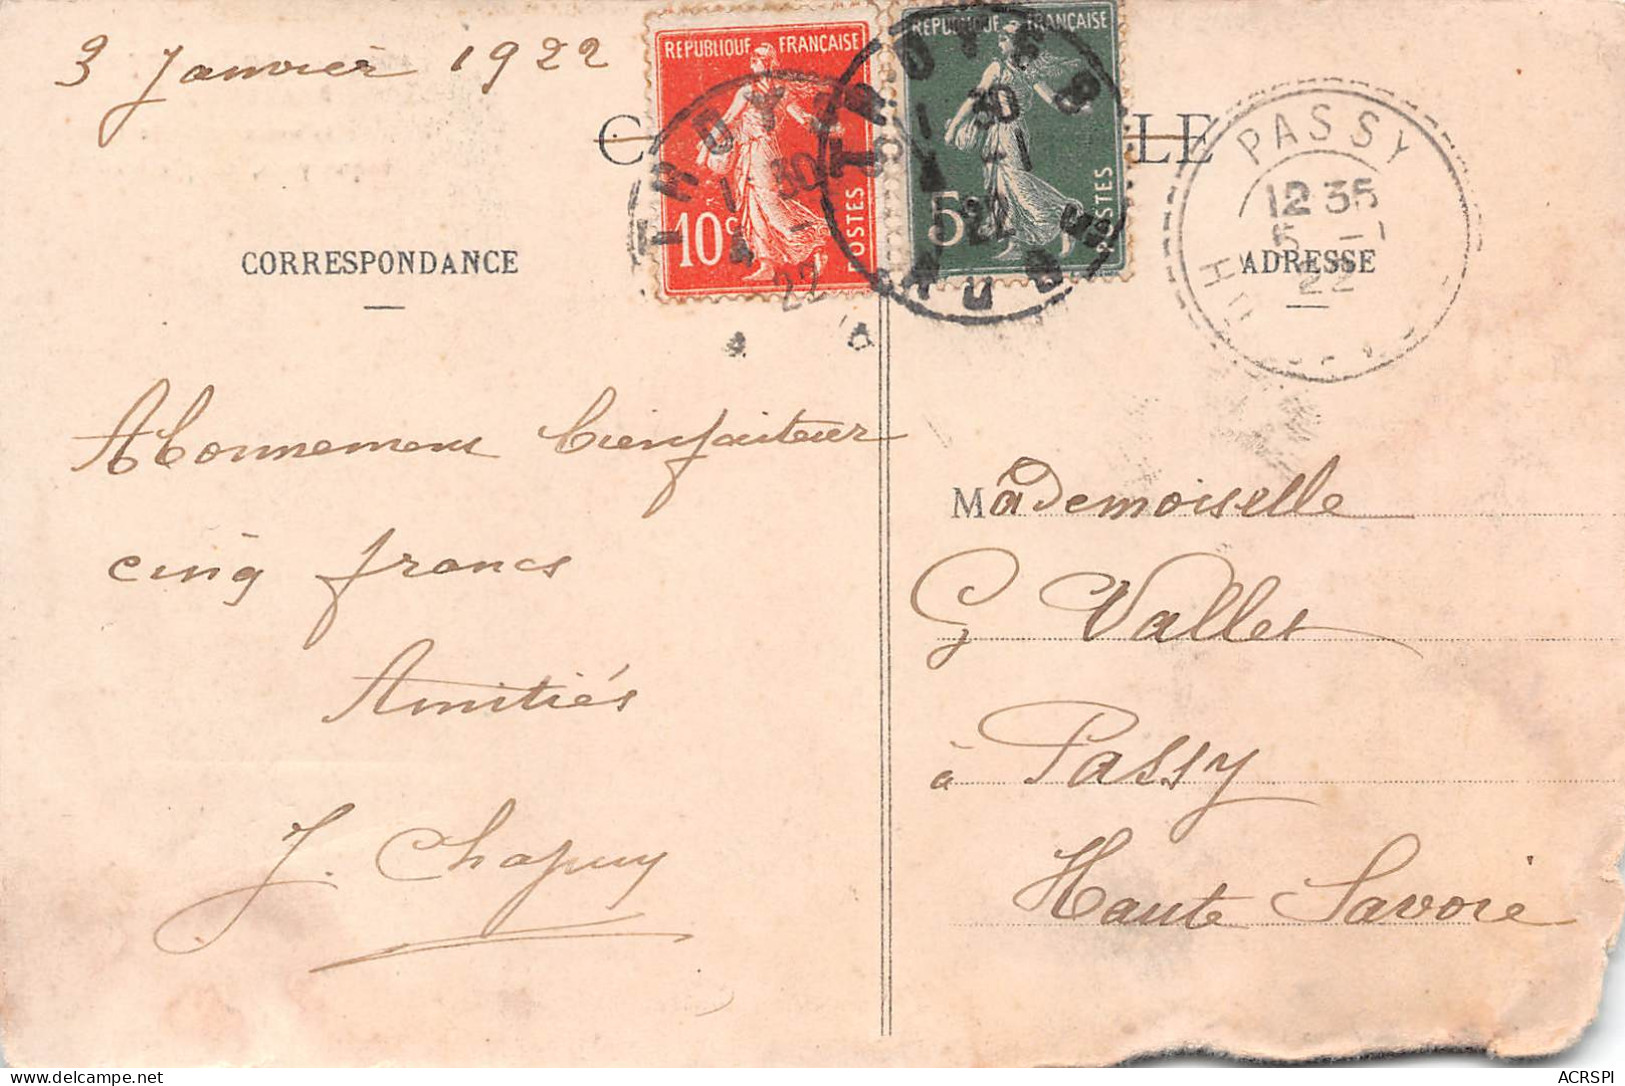 3 Janvier 1922
REPUBLIQUE FRANÇAISE
10c
POSTES
REPUBLIQUE FRANÇAISE
5c
POSTES
TROYES
1 30
4 - 1
22
AUBE
C LE
PASSY
12 35
5 - 1
22
CORRESPONDANCE
ADRESSE
Abonnement bienfaiteur
cinq francs
Amitiés
J. Chapuy
Mademoiselle
G Vallet
à Passy
Haute Savoie
ACRSPI